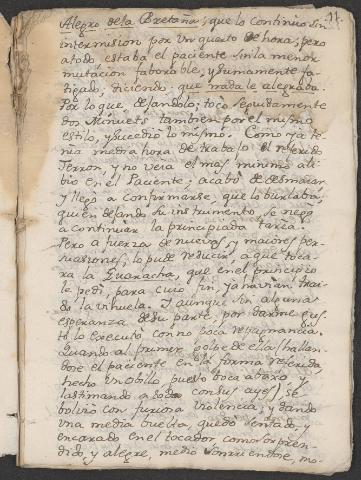 11.
Alegro de la Bretaña; que lo continuò sin
intermision por un quarto de hora; pero
a todo estaba el paciente sin la menor
mutacion faborable, y sumamente fa-
tigado, diciendo: que nada le alegraba.
Por lo que dejandolo; tocò seguidamente
dos Minuets tambien por el mismo
estilo, y sucediò lo mismo. Como ya te-
nia media hora de trabajo el referido
Ferron, y no veia el mas minimo ali-
bio en el Paciente; acabò de desmaiar
y llegò a confirmarse, que lo burlaba,
quien dejando su instrumento, se negò
a continuar la principiada tarea.
Pero a fuerza de nuevas, y maiores per-
suasiones, lo pude reducir, a que toca-
ra la Guaracha, que en el principio
le pedi, para cuio fin, ya havian trai-
do la vihuela. Y aunque sin alguna
esperanza de su parte, por darme gus-
to lo executò con no poca repugnancia.
Quando al primer golpe de ella (hallan-
dose el paciente en la forma referida
hecho un obillo, puesto boca abaxo, y
lastimando a todos con sus ayes), se
bolviò con furiosa violencia; y dando
una media buelta, quedò sentado, y
encarado en el tocador, como sorpren-
dido, y alegre, medio sonriendose, mo-